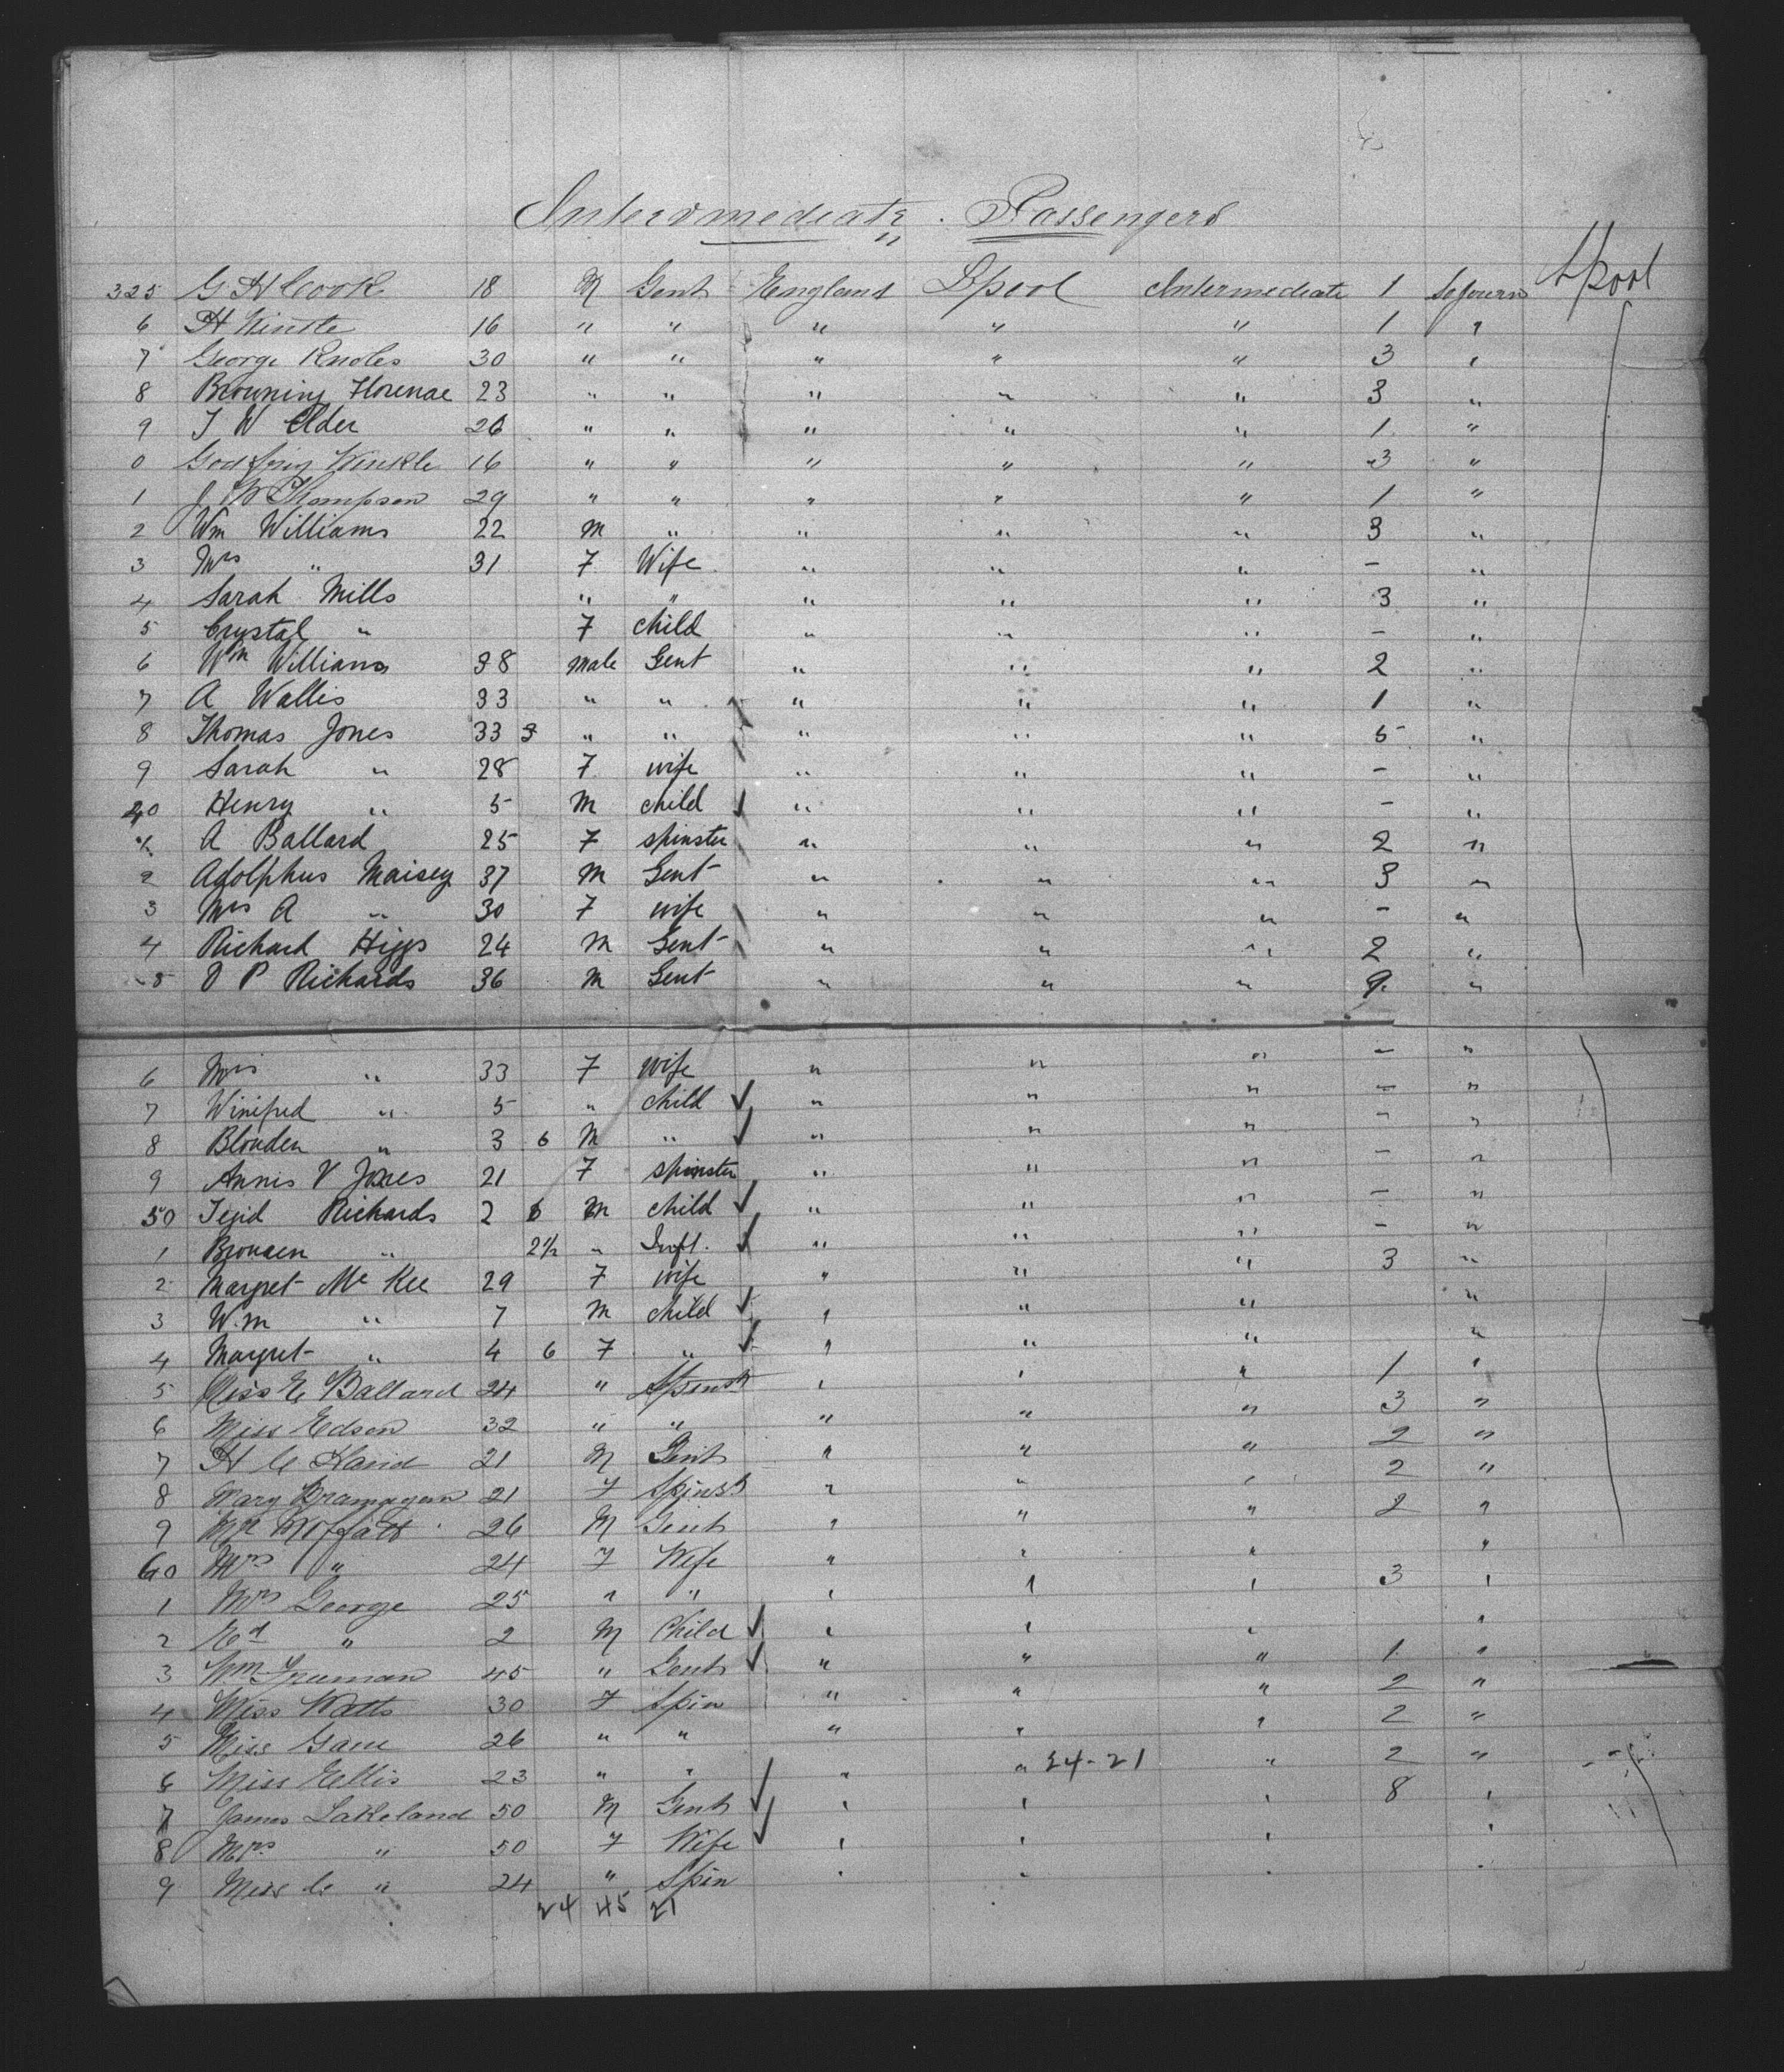 Intermediate Passengers
325 G H Cook 18 M Gent England Lpool Intermediate 1 Sojourn Lpool
6 H 16 " " " " " 1 "
7 George Knoles 30 " " " " " 3 "
8 Browning Florenae 23 " " " " " 3 "
9 J W Elder 26 " " " " " 1 "
0 Winkle 16 " " " " " 3 "
1 J W Thompson 29 " " " " " 1 "
2 Wm Williams 22 M " " " " 3 "
3 Mrs " 31 F Wife " " " - "
4 Sarah Mills " " " " " 3 "
5 Crystal " F child " " " - "
6 Wm Williams 38 Male Gent " " " 2 "
7 A Wallis 33 " " " " " 1 "
8 Thomas Jones 33 3 " " " " " 5 "
9 Sarah " 28 F wife " " " - "
40 Henry " 5 M child ✓ " " " - "
A Ballard 25 F spinster " " " 2 "
2 Adolphus Maisey 37 M Gent " " " 3 "
3 Mrs A " 30 F wife " " " - "
4 Richard Higgs 24 M Gent " " " 2 "
5 P Richards 36 M Gent " " " 9 "
6 Mrs " 33 F wife " " " - "
7 Winifred " 5 " child ✓ " " " - "
8 Blouden " 3 6 M " ✓ " " " - "
9 Annis V Jones 21 F spinster " " " - "
50 Tejid Richards 2 6 M child ✓ " " " - "
1 Bronaen " 2½ " Inft. ✓ " " " - "
2 Margret Mc Kee 29 F wife " " " 3 "
3 Wm " 7 M child ✓ " " " "
4 Margret " 4 6 F " ✓ " " " "
5 Miss E Ballard 24 " Spinst " " " 1 "
6 Miss Edson 32 " " " " " 3 "
7 H C 21 M Gent " " " 2 "
8 Mary 21 F Spinst " " " 2 "
9 Mr Moffatt 26 M Gent " " " 2 "
60 Mrs " 24 F Wife " " " "
1 Mrs George 25 " " " " " 3 "
2 Ed " 2 M Child ✓ " " " "
3 Wm Freeman 45 " Gent ✓ " " " 1 "
4 Miss Watts 30 F Spin " " " 2 "
5 Miss 26 " " " " " 2 "
6 Miss Ellis 23 " " " " 24-21 " 2 "
7 James Lakeland 50 M Gent ✓ " " " 8 "
8 Mrs " 50 F Wife ✓ " " " "
9 Miss C " 24 " Spin " " " "
24 45 21